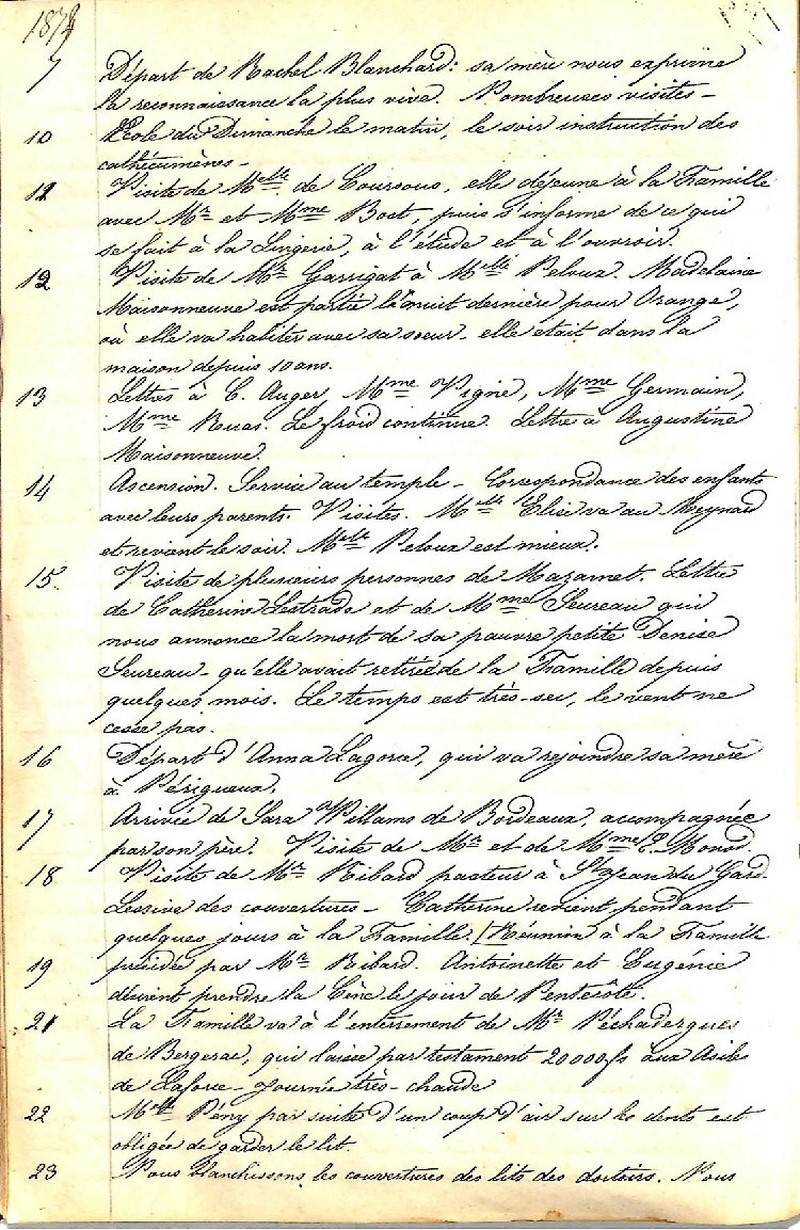 187
7 Départ de Rachel Blanchard: sa mère nous exprime
la reconnaissance la plus vive. Nombreuses visites –
10 Ecole du Dimanche le matin, le soir instruction des
cathécumènes –
12 Visite de Melle de Coursous, elle déjeune à la Famille
avec Mr et Mme Bost, puis s'informe de ce qui
se fait à la Lingerie, à l'étude et à l'ouvroir.
12 Visite de Mr Garrigat à Melle Peloux. Madelaine
Maisonneuve est partie la nuit dernière pour Orange,
où elle va habiter avec sa sœur – elle était dans la
maison depuis 10 ans.
13 Lettres à C. Auger, Mme Vigné, Mme Germain,
Mme Rouas. Le froid continue. Lettre à Augustine
Maisonneuve.
14 Ascension. Service au temple – Correspondance des enfants
avec leurs parents. Visites. Melle Elise va au Meynard
et revient le soir. Melle Peloux est mieux.
15. Visite de plusieurs personnes de Mazamet. Lettre
de Catherine Lestrade et de Mme Seureau qui
nous annonce la mort de sa pauvre petite Denise
Seureau – qu'elle avait retirée de la Famille depuis
quelques mois. Le temps est très-sec, le vent ne
cesse pas.
16 Départ d'Anna Lagorce, qui va rejoindre sa mère
à Périgueux.
17 Arrivée de Sara Willams de Bordeaux, accompagnée
par son père. Visite de Mr et de Mme E. Monod.
18 Visite de Mr Ribard pasteur à St Jean du Gard.
Lessive des couvertures – Catherine revient pendant
quelques jours à la Famille. / Réunion à la Famille
19 présidée par Mr Ribard. Antoinette et Eugénie
désirent prendre la Cène le jour de Pentecôte.
21 La Famille va à l'enterrement de Mr Péchadergues
de Bergerac, qui laisse par testament 20000 fs aux Asiles
de Laforce – Journée très-chaude
22 Melle Pény par suite d'un coup d'air sur les dents est
obligée de garder le lit.
23 Nous blanchissons les couvertures des lits des dortoirs. Nous